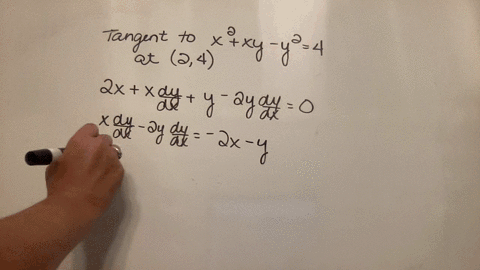 Tangent to x²+xy-y²=4
at (2,4)
2x + x dy/dx + y - 2y dy/dx = 0
x dy/dx - 2y dy/dx = -2x - y